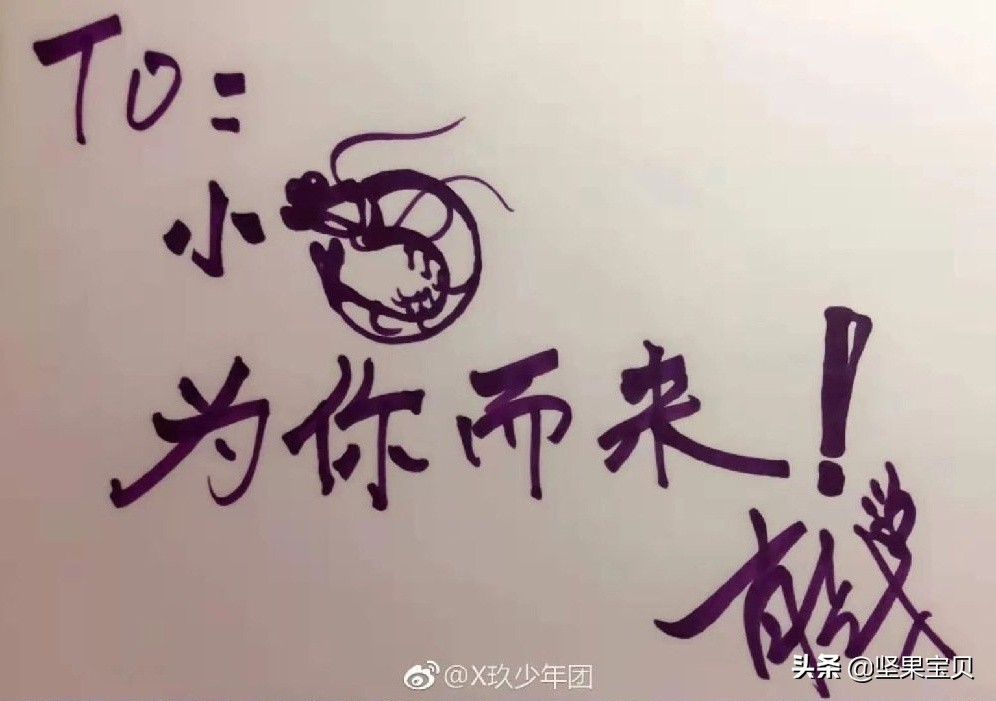 TO:
小
为你而来!
@X玖少年团
头条 @坚果宝贝